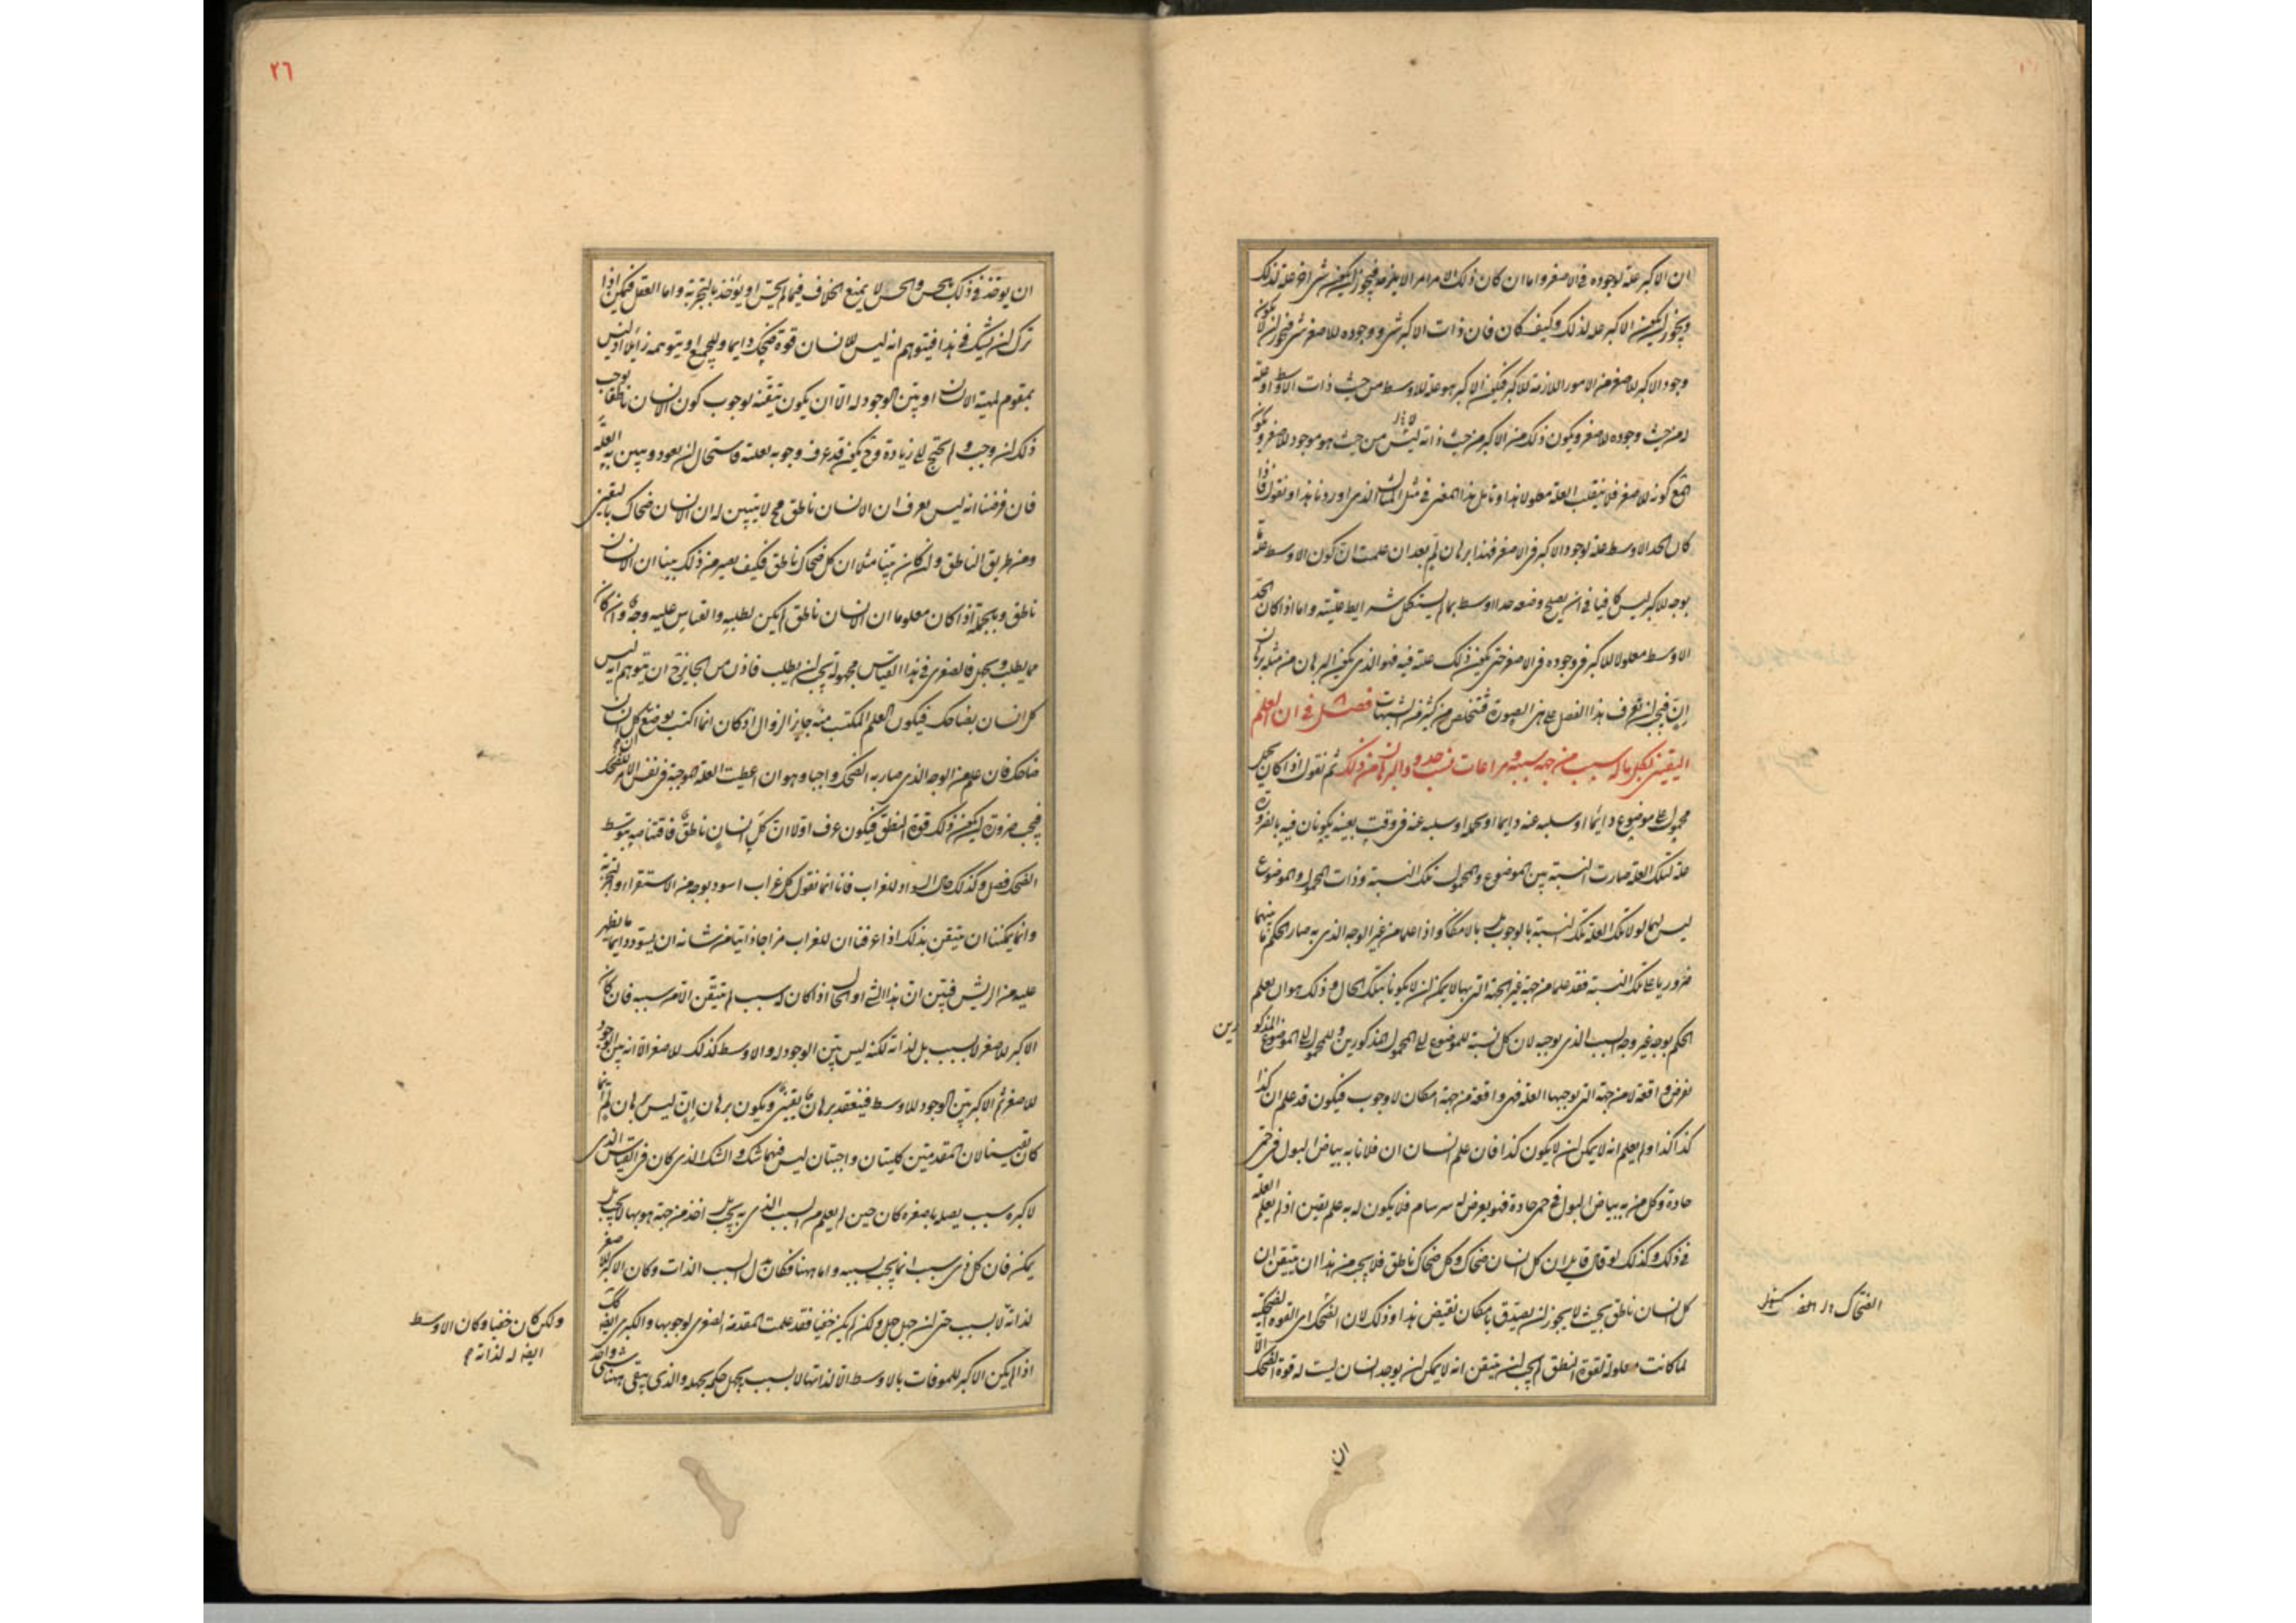 ان الاكبر علة لوجوده فى الاصغر واما ان كان ذلك الامر امرا لا يلزمه فيجوز ان يكون شى آخر علة لذلك
ويجوز ان يكون الاكبر علة لذلك وكيف كان فان ذات الاكبر شى ووجوده للاصغر شى فيجوز ان لا يكون
وجود الاكبر للاصغر من الامور اللازمة للاكبر فيكون الاكبر هو علة للاوسط من حيث ذات الاوسط او علة
له من حيث وجوده للاصغر ويكون ذلك من الاكبر من حيث ذاته ليس من حيث هو موجود للاصغر ويكون
مع كونه للاصغر فلا ينقلب العلة معلولا هذا وتامل هذا المعنى فى مثل المثال الذى اوردنا هذا ونقول فاذا
كان الحد الاوسط علة لوجود الاكبر فى الاصغر فهذا برهان لم بعد ان علمت ان كون الاوسط علة ما
بوجه للاكبر ليس كافيا فى ان يصلح وضعه حدا اوسط بما لم يستكمل شرايط عليته واما اذا كان الحد
الاوسط معلولا للاكبر فى وجوده فى الاصغر حتى يكون ذلك علته فيه فهو الذى يكون البرهان من مثله برهان
ان فيجب ان تعرف هذا الفصل على هذه الصورة فتتخلص من كثير من الشبهات فصل فى ان العلم
اليقينى لكل ماله سبب من جهة سببه ومراعات نسب حدود البرهان من ذلك ثم نقول اذا كان لحمل
محمول على موضوع دايما او سلبه عنه دايما او لحمله او سلبه عنه فى وقت بعينه يكونان فيه بالضرورة
علة لتلك العلة صارت النسبة بين الموضوع والمحمول تلك النسبة وذات المحمول والموضوع
ليس لهما لولا تلك العلة تلك النسبة بالوجوب بل بالامكان واذا علما من غير الوجه الذى به صار الحكم ما بينهما
ضروريا على تلك النسبة فقد علما من جهة غير الجهة التى بها لا يمكن ان لا يكونا بتلك الحال وذلك هو ان يعلم
الحكم بوجه غير وجه السبب الذى يوجبه لان كل نسبة للموضوع الى المحمول المذكورين وللمحمول الى الموضوع المذكو
رين
تفرض واقعة لا من جهة التى توجبها العلة فهى واقعة من جهة امكان لا وجوب فيكون قد علم ان كذا
كذا كذا ولم يعلم انه لا يمكن ان لا يكون كذا فان علم انسان ان فلانا به بياض البول فى حمى
حادة وكل من به بياض البول فى حمى حادة فهو يعرض له سرسام فلا يكون له به علم يقين اذ لم يعلم العلة
فى ذلك وكذلك لو قال قايل ان كل انسان ضحاك وكل ضحاك ناطق فلا يجب من هذا ان يتيقن ان
كل انسان ناطق بحيث لا يجوز ان يصدق بامكان نقيض هذا وذلك لان الضحك اى القوة الضحكية
لما كانت معلولة لقوة النطق لم يجب ان يتيقن انه لا يمكن ان يوجد انسان ليست له قوة الضحك الا
ان
ان يوخذ فى ذلك بالحس والحس لا يمنع الخلاف فيما لم يحس او يؤخذ بالتجربة واما العقل فيمكن اذا
ترك ان يشك فى هذا فيتوهم انه ليس للانسان قوة ضحك دايما وللجميع او يتوهمه زايلا اذ ليس
بمقوم لمهية الانسان او بين الوجود له الا ان يكون تيقنه لوجوب كون الانسان ناطقا يوجب
ذلك ان وجب ولم يحتج الى زيادة وح يكون قد عرف وجوبه بعلته فاستحال ان يعود ويبين به العلة
فان فرضنا انه ليس يعرف ان الانسان ناطق مح لا يتبين له ان الانسان ضحاك باليقين
ومن طريق الناطق وان كان بينا مثلا ان كل ضحاك ناطق فكيف يصير من ذلك بينا ان الانسان
ناطق وبالجملة اذا كان معلوما ان الانسان ناطق لم يكن لطلبه والقياس عليه وجه وان كان
مما يطلب ويجهل فالصغرى فى هذا القياس مجهولة يجب ان يطلب فاذن من الجايز ح ان يتوهم انه ليس
كل انسان بضاحك فيكون العلم المكتسب منه جايز الزوال اذ كان انما اكتسب بوضع كل انسان
ضاحك فان علم من الوجه الذى صار به الضحك واجبا وهو ان اعطيت العلة الموجبة فى نفس الامر للضحك
فيجب ضرورة ان يكون ذلك قوة النطق فيكون عرف اولا ان كل انسان ناطق فاقتناصه بتوسط
الضحك فضل وكذلك حال السواد للغراب فانا انما نقول كل غراب اسود بوجه من الاستقراء والتجربة
وانما يمكننا ان نتيقن بذلك اذا عرفنا ان للغراب مزاجا ذاتيا من شانه ان يسود دايما ما يظهر
عليه من الريش فبين ان هذا الشى او الحال اذا كان له سبب لم يتيقن الا من سببه فان كان
الاكبر للاصغر لا بسبب بل لذاته لكنه ليس بين الوجود له والاوسط كذلك للاصغر الا انه بين الوجود
للاصغر ثم الاكبر بين الوجود للاوسط فينعقد برهان يقينى ويكون برهان ان ليس برهان لم وانما
كان يقينيا لان المقدمتين كليتان واجبتان ليس فيهما شك والشك الذى كان فى القياس الذى
لاكبره سبب يصله باصغره كان حين لم يعلم من السبب الذى به يجب بل اخذ من جهة هو بها لا يجب بل
يمكن فان كل ذى سبب انما يجب بسببه واما ههنا فكان بدل السبب الذات وكان الاكبر للاصغر
لذاته لا بسبب حتى ان جهل جهل ولكن لم يكن خفيا فقد علمت المقدمة الصغرى لوجوبها والكبرى ايضا كك
ولكن كان خفيا وكان الاوسط
ايضا له لذاته م
اذا لم يكن الاكبر للموصوفات بالاوسط الا لذاتها لا بسبب يجهل حكمه بجهله والذى يبقى ههنا شى واحد